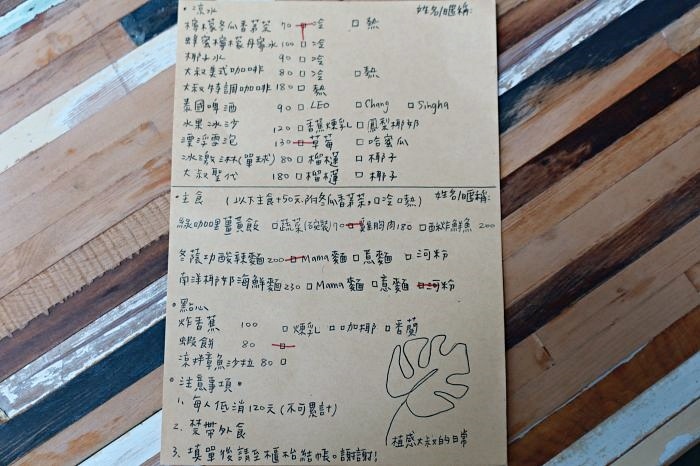 • 涼水 姓名/暱稱:
檸檬冬瓜香茅茶 70 □ 冷 □ 熱
蜂蜜檸檬丹寧水 100 □ 冷
椰子水 90 □ 冷
大叔美式咖啡 80 □ 冷 □ 熱
大叔特調咖啡 180 □ 熱
泰國啤酒 90 □ LEO □ Chang □ Singha
水果冰沙 120 □ 香蕉煉乳 □ 鳳梨椰奶
漂浮雪泡 130 □ 草莓 □ 哈蜜瓜
冰激淋(單球) 80 □ 榴槤 □ 椰子
大叔聖代 180 □ 榴槤 □ 椰子
• 主食 (以下主食+50元.附冬瓜香茅茶, □ 冷 □ 熱) 姓名/暱稱:
綠咖哩薑黃飯 □ 蔬菜(碗裝)170 □ 雞胸肉180 □ 酥炸鮮魚 200
冬蔭功酸辣麵 200 □ Mama麵 □ 意麵 □ 河粉
南洋椰奶海鮮麵 230 □ Mama麵 □ 意麵 □ 河粉
• 點心
炸香蕉 100 □ 煉乳 □ 咖椰 □ 香蘭
蝦餅 80 □
涼拌章魚沙拉 80 □
• 注意事項。
1. 每人低消120元 (不可累計)
2. 禁帶外食
3. 填單後請至櫃枱結帳。謝謝!
植感大叔的日常